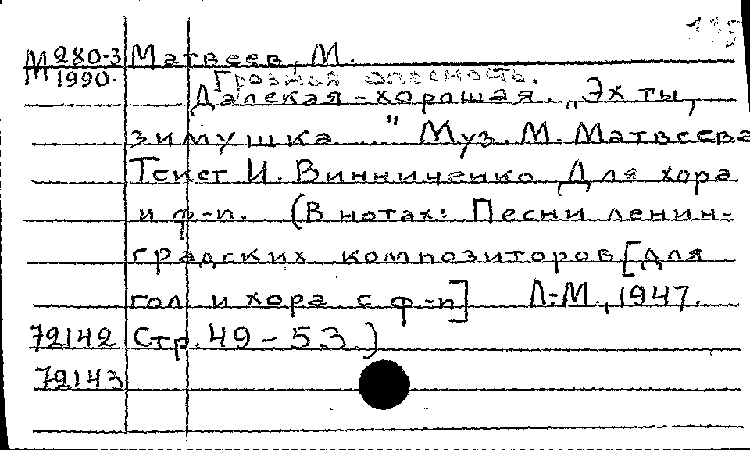 М 280-3 Матвеев, М.
М 1990.
Грозная опасность.
Далекая-хорошая. „Эх ты,
зимушка ..." Муз. М. Матвеева
Текст И. Винниченко Для хора
и ф-п. (В нотах: Песни ленин-
градских композиторов [для
гол. и хора с ф-п] Л.-М, 1947.
72142 Стр. 49-53.)
72143